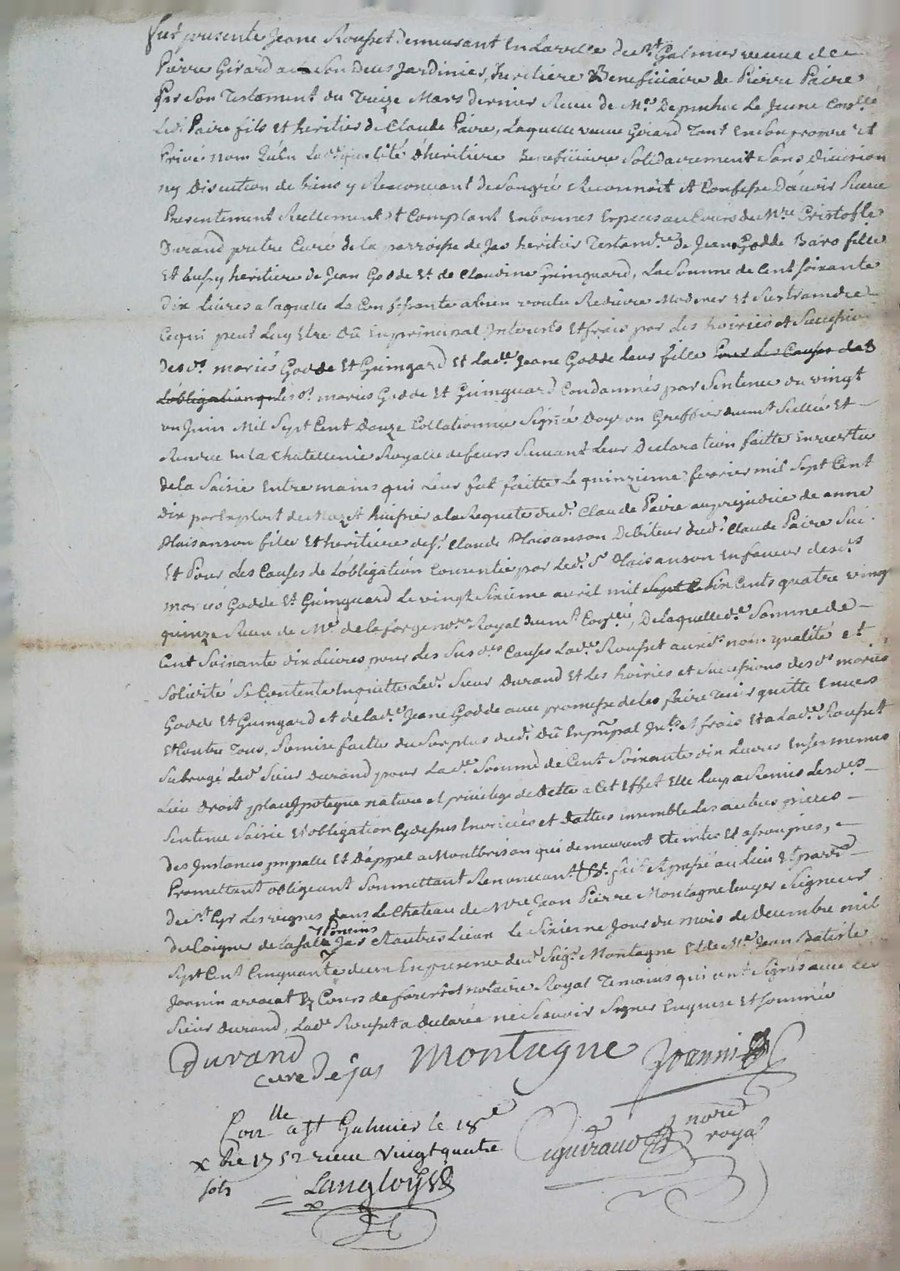 fut presente Jeane Rousset demeurant En la ville de St Galmier veuve de
Pierre Girard a son Deces Jardinier, heritiere Beneficiaire de Pierre Paire
Par Son Testament du Treize Mars dernier Receu de Me Depinhac Le Jeune
Led. Paire fils Et heritier de Claude Paire, Laquelle veuve Girard Tant En son propre Et
Privé nom Qu'En Lad. qualité d'heritiere Beneficiaire Solidairement Sans Division
ny Discution de biens y Renoncant de Son gré Reconnoit Et Confesse D'avoir Receu
Presentement Reellement Et Comptant En bonnes Especes au Cours de Mre Cristofle
Durand pretre Curé de la parroisse de Jas heritier Testamre de Jeane Godde Baro fille
Et aussy heritiere de Jean Godde Et de Claudine Guinguard, La Somme de Cent soixante
dix Livres a laquelle La Confessante a bien voulu Reduire Moderer Et
Ce qui peut Luy Etre Dû En principal Interests Et frais par Les hoiries Et Succession
desd. mariés Godde Et Guingard Et Lad. Jeane Godde Leur fille Pour Les Causes de
L'obligation que Lesd. mariés Godde Et Guinguard Condamnés par Sentence du vingt
un Juin Mil Sept Cent Douze Collationnée Signée Greffier Scellée Et
En La Chatellenie Royalle de feurs Suivant Leur Declaration faitte En vertu
de la Saisie Entre mains qui Leur fut faitte Le quinzieme fevrier mil Sept Cent
Dix par Exploit de huissier a la Requete dud. Claude Paire au prejudice de anne
Plaisanson fille Et heritiere de f. Claude Plaisanson Debiteur dud. Claude Paire
Et Pour Les Causes de L'obligation Consentie par Led. Sr Plaisanson En faveur desd.
mariés Godde Et Guinguard Le vingt Sixieme avril mil Sept C Six Cents quatre vingt
quinze Receu de Me de la forge nore Royal, De Laquelle de Somme de
Cent Soixante dix Livres pour Les Susd. Causes Lad. Rousset aud. nom qualité Et
Solicité Se Contente En quitte Led. Sieur Durand Et Les hoiries et Successions desd. mariés
Godde Et Guingard et de Lad. Jeane Godde avec promesse de Les faire Tenir quitte Envers
Et Contre Tous, Sa mise faitte du Surplus dud. Dû En principal Et frais Et a Lad. Rousset
Subrogé Led. Sieur Durand pour Lad. Somme de Cent Soixante dix Livres En Ses memes
Lieu Droit place hypoteque nature et privilege de Dette a Cet Effet Elle Luy a Remis Lesd.
Sentence Saisie Et obligation Cy dessus Enoncées et Dattées Ensemble Les autres pieces
Des Instances Et D'appel a Montbrison qui demeurent Eteintes Et assoupies,
Promettant obligeant Soumettant Renoncant Etc. fait Et passé au Lieu Et parro
De St Cyr Les vignes dans Le Chateau de Mre Jean Pierre Montagne Ecuyer Seigneur
de Poncins
de Laigne de La salle Jas Et autres Lieux Le Sixieme Jour du Mois de Decembre mil
Sept Cent Cinquante deux En presence dud. Seigr Montagne Et de Me Jean Batiste
Joannin avocat Cours de forest Et notaire Royal Temoins qui ont Signés avec Led.
Sieur Durand, Lad. Rousset a Declarée ne Scavoir Signer Enquise Et Sommée
Durand
curé De jas
Montagne
Joannin
Con lle a St Galmier le 18e
x bre 1752 receu vingt quatre
sols
Langloys
nore
royal